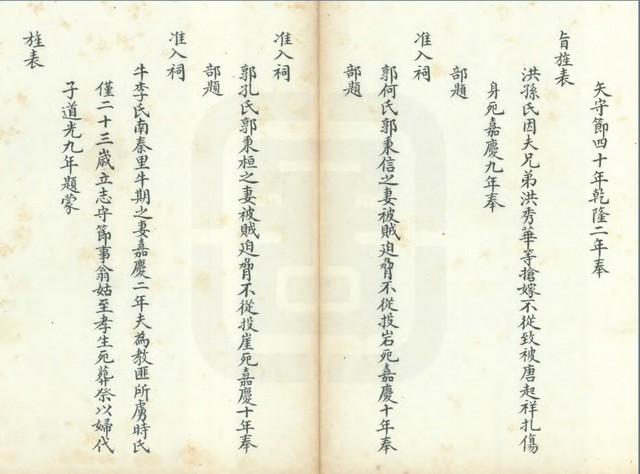 矢守節四十年乾隆二年奉
旨旌表
洪孫氏因夫兄弟洪秀華等搶嫁不從致被唐起祥扎傷
身死嘉慶九年奉
部題
准入祠
郭何氏郭秉信之妻被賊迫脅不從投岩死嘉慶十年奉
部題
准入祠
郭孔氏郭秉桓之妻被賊迫脅不從投崖死嘉慶十年奉
部題
准入祠
牛李氏南秦里牛期之妻嘉慶二年夫為教匪所虜時氏
僅二十三歲立志守節事翁姑至孝生死葬祭以婦代
子道光九年題蒙
旌表